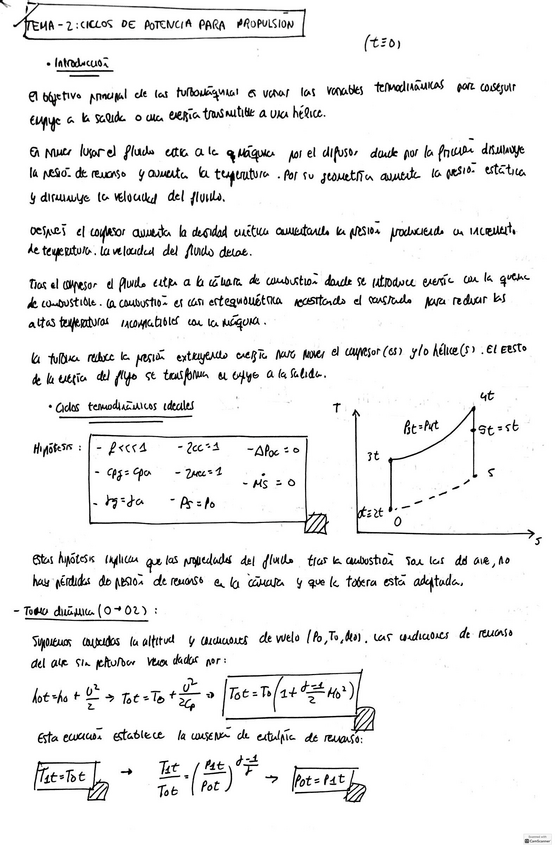 TEMA-2: CICLOS DE POTENCIA PARA PROPULSIÓN
(t≡0)
• Introducción
El objetivo principal de las turbomáquinas es variar las variables termodinámicas para conseguir
empuje a la salida o una energía transmitible a una hélice.
En primer lugar el fluido entra a la máquina por el difusor donde por la fricción disminuye
la presión de remanso y aumenta la temperatura. Por su geometría aumenta la presión estática
y disminuye la velocidad del fluido.
Después el compresor aumenta la densidad aumentando la presión produciendo un incremento
de temperatura. La velocidad del fluido decae.
Tras el compresor el fluido entra a la cámara de combustión donde se introduce energía con la quema
de combustible. La combustión es casi estequiométrica necesitando el sangrado para reducir las
altas temperaturas incompatibles con la máquina.
La turbina reduce la presión extrayendo energía para mover el compresor(es) y/o hélice(s). El resto
de la energía del flujo se transforma en empuje a la salida.
• Ciclos termodinámicos ideales
Hipótesis:
- f<<<1 - ηcc=1 - ΔPcc=0
- Cpg=Cpa - ηmec=1 - ṁs=0
- γg=γa - P5=P0
T
4t
P3t=P4t
3t
5t=5t
5
0t≡2t
0
s
Estas hipótesis implican que las propiedades del fluido tras la combustión son las del aire, no
hay pérdidas de presión de remanso en la cámara y que la tobera está adaptada.
- Toma dinámica (0→02):
Suponemos conocidas la altitud y condiciones de vuelo (P0,T0,M0). Las condiciones de remanso
del aire sin perturbar vienen dadas por:
h0t=h0+U²/2 → T0t=T0+U²/2Cp → T0t=T0(1+γ-1/2 M0²)
Esta ecuación establece la conserv. de entalpía de remanso:
T1t=T0t → T1t/T0t=(P1t/P0t)^γ-1/γ → P0t=P1t
CamScanner